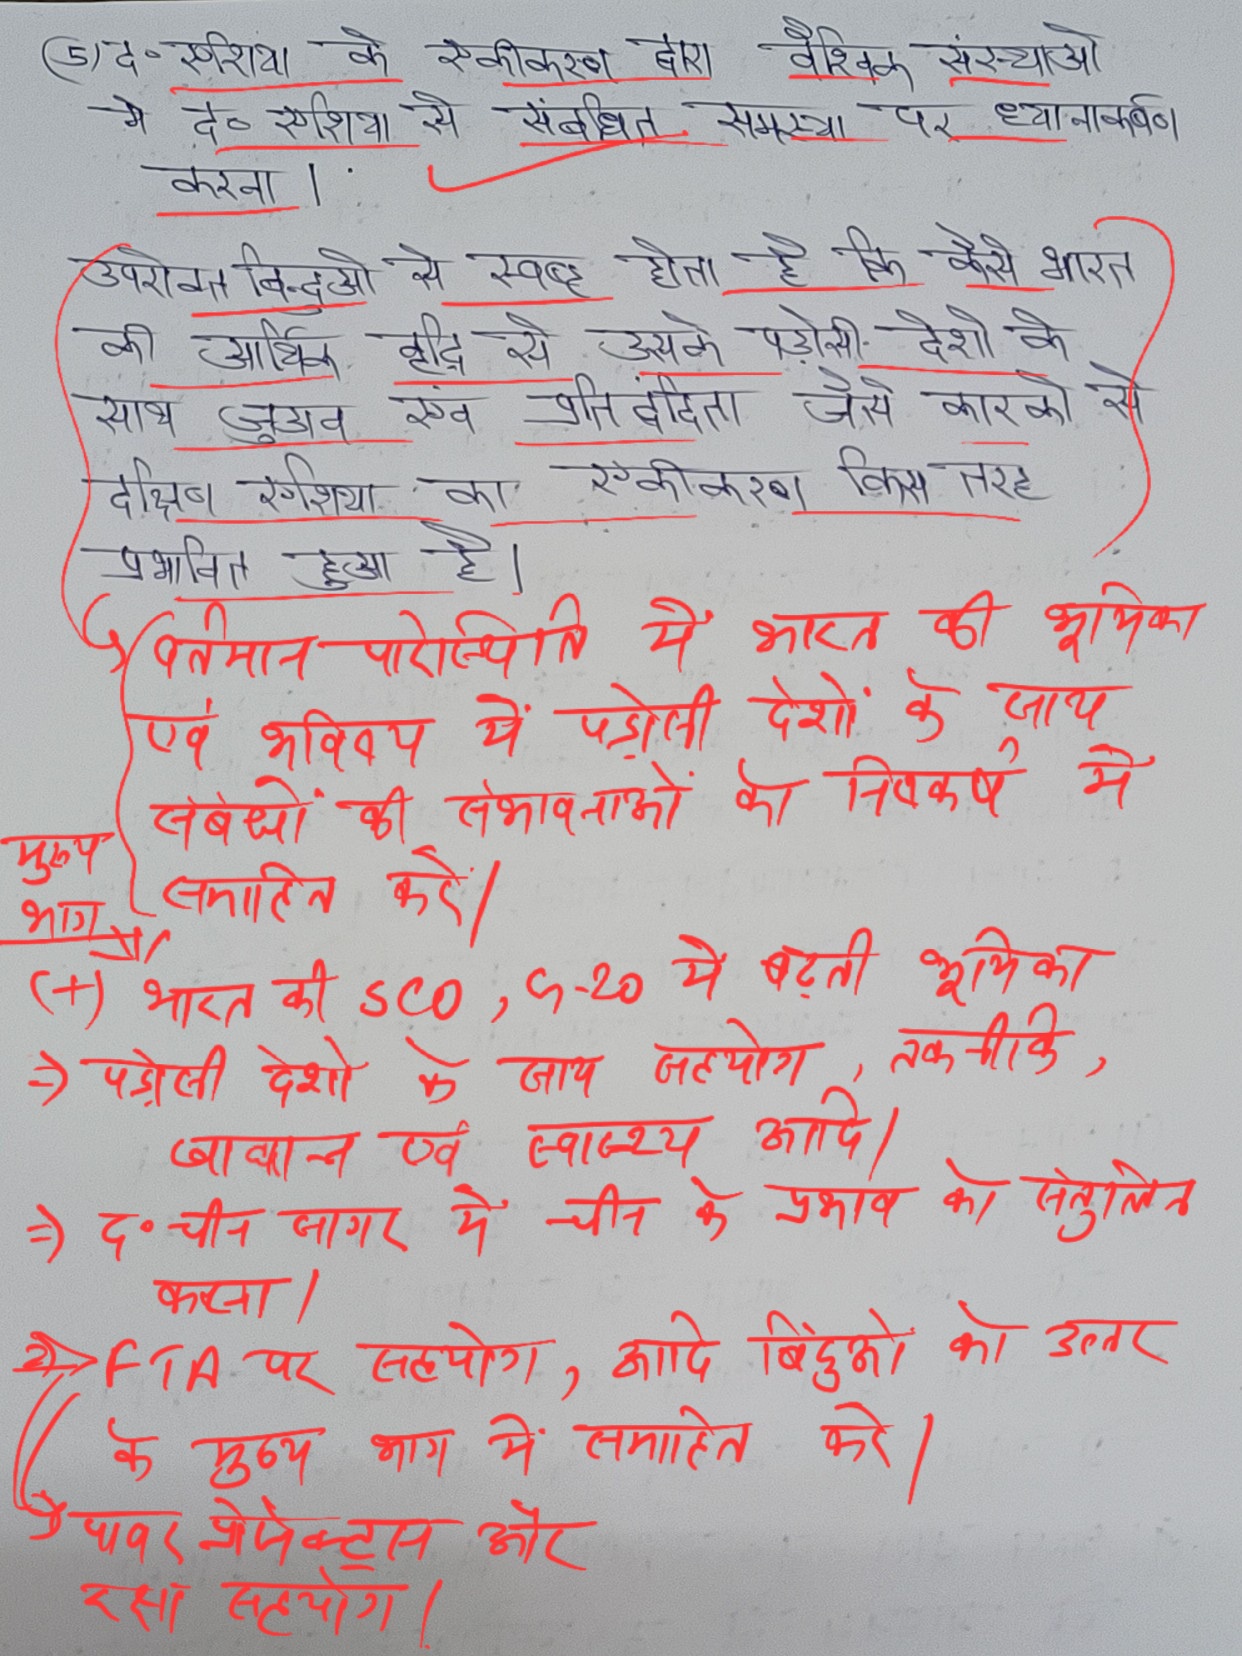 (5) द॰ एशिया के एकीकरण द्वारा वैश्विक संस्थाओ
मे द॰ एशिया से संबंधित समस्या पर ध्यानाकर्षण
करना ।
उपरोक्त बिन्दुओ से स्पष्ट होता है कि कैसे भारत
की आर्थिक वृद्धि से उसके पड़ोसी देशो के
साथ जुडाव एंव प्रतिद्वंदिता जैसे कारको से
दक्षिण एशिया का एकीकरण किस तरह
प्रभावित हुआ है।
वर्तमान परिस्थिति में भारत की भूमिका
एवं भविष्य में पड़ोसी देशों के साथ
संबंधों की संभावनाओं को निष्कर्ष में
समाहित करें।
मुख्य
भाग
(+) भारत की SCO, G-20 में बढ़ती भूमिका
⇒ पड़ोसी देशो के साथ सहयोग, तकनीकि,
खाद्यान्न एवं स्वास्थ्य आदि।
⇒ द॰ चीन सागर में चीन के प्रभाव को संतुलित
करना।
⇒ FTA पर सहयोग, आदि बिंदुओं को उत्तर
के मुख्य भाग में समाहित करें।
→ पावर प्रोजेक्ट्स और
रक्षा सहयोग।